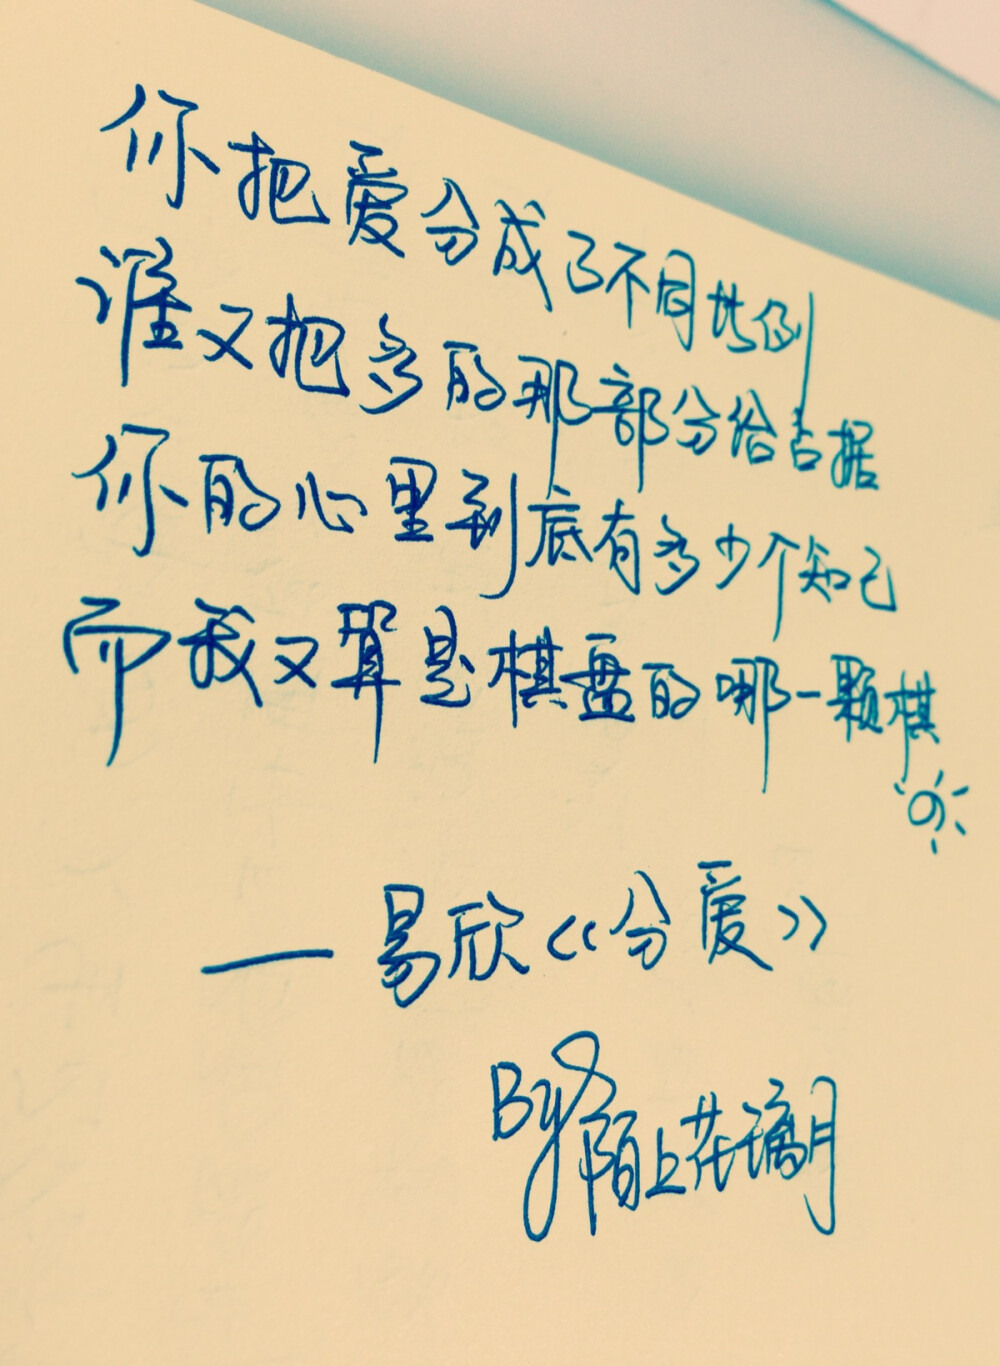 你把爱分成了不同比例
谁又把多的那部分给占据
你的心里到底有多少个知己
而我又算是棋盘的哪一颗棋
—易欣《分爱》
By陌上花璃月